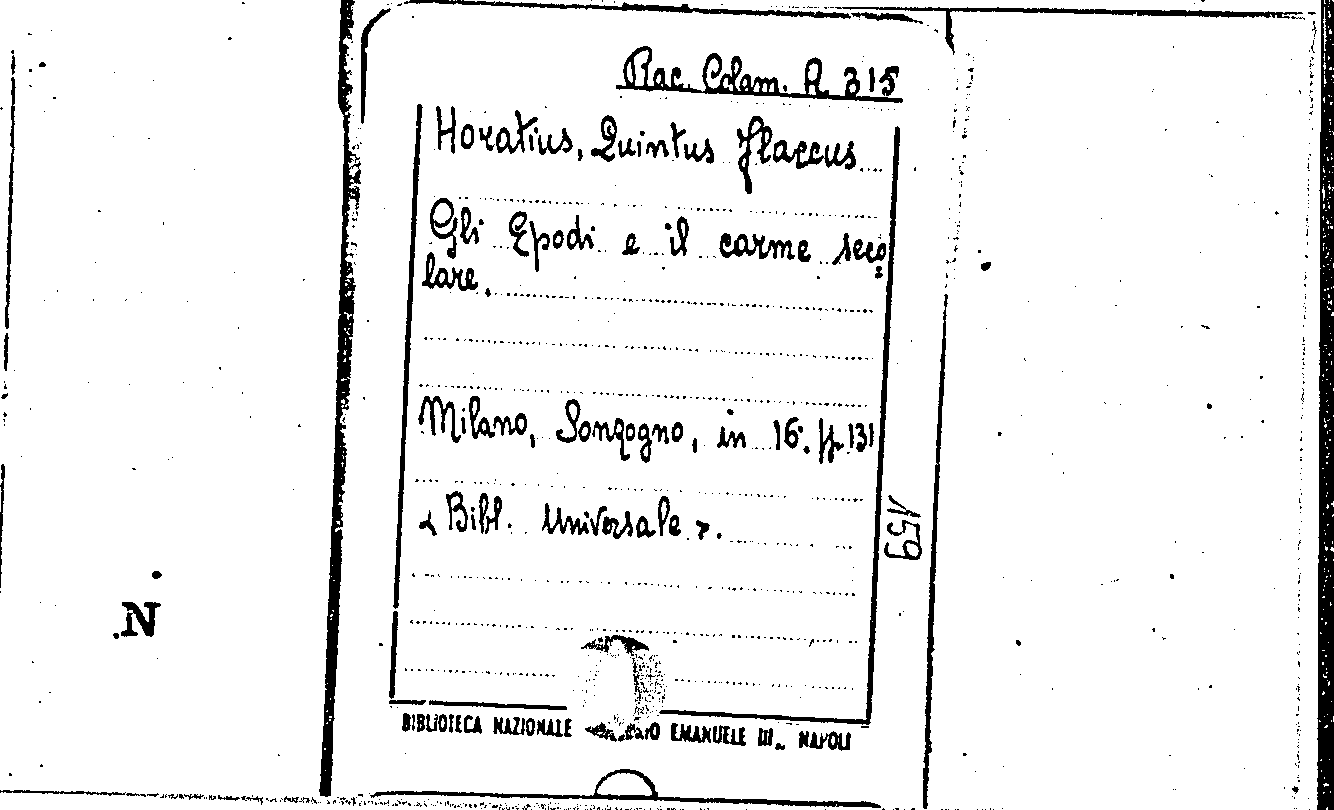 Rac. Colam. A 315
Horatius, Quintus Flaccus
Gli Epodi e il carme seco=
lare.
Milano, Sonzogno, in 16. pp. 131
« Bibl. Universale ».
159
N
BIBLIOTECA NAZIONALE EMANUELE III„ NAPOLI